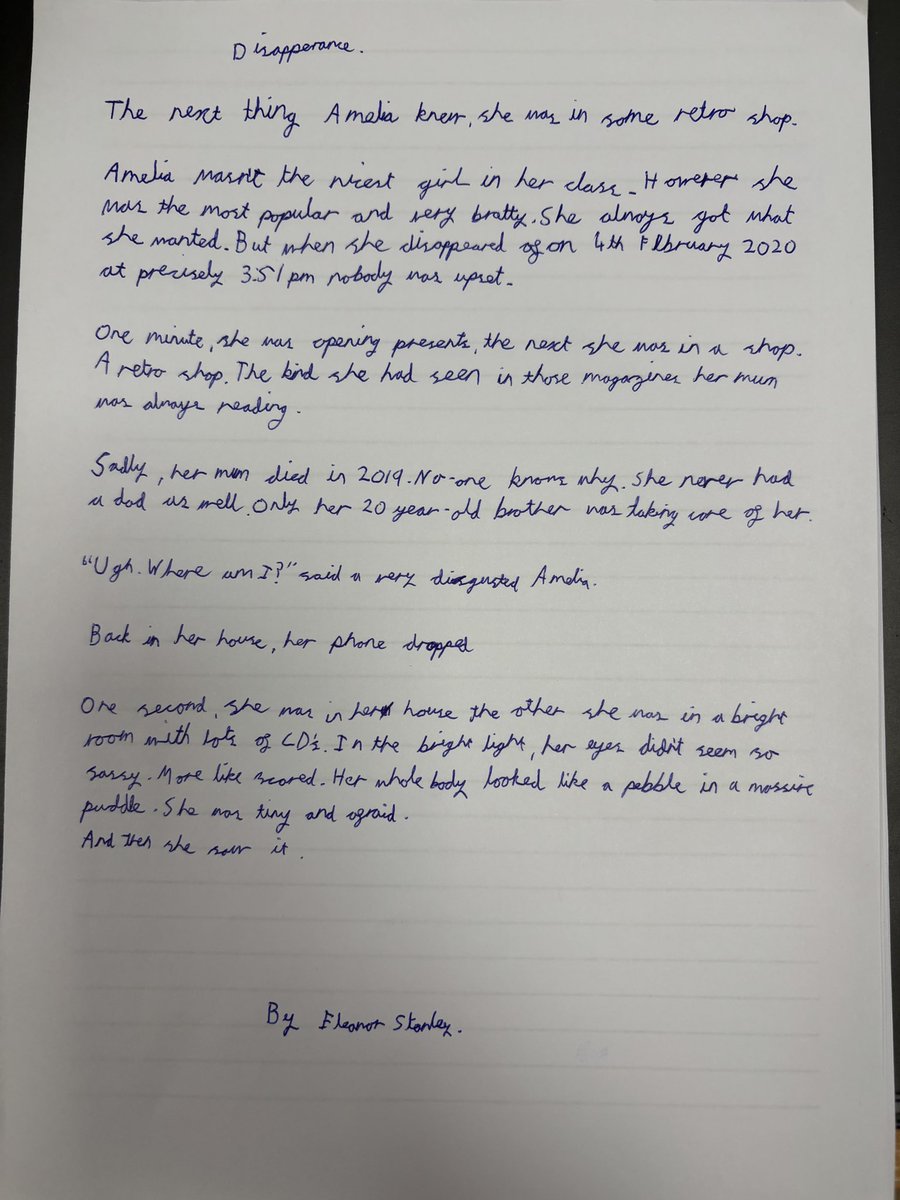 Disapperance.
The next thing Amelia knew, she was in some retro shop.
Amelia wasn't the nicest girl in her class. However she
was the most popular and very bratty. She always got what
she wanted. But when she disappeared on 4th February 2020
at precisely 3:51pm nobody was upset.
One minute, she was opening presents, the next she was in a shop.
A retro shop. The kind she had seen in those magazines her mum
was always reading.
Sadly, her mum died in 2019. No-one knows why. She never had
a dad as well. Only her 20 year-old brother was taking care of her.
"Ugh. Where am I?" said a very disgusted Amelia.
Back in her house, her phone dropped
One second, she was in her house the other she was in a bright
room with lots of CD's. In the bright light, her eyes didn't seem so
sassy. More like scared. Her whole body looked like a pebble in a massive
puddle. She was tiny and afraid.
And then she saw it.
By Eleanor Stanley.